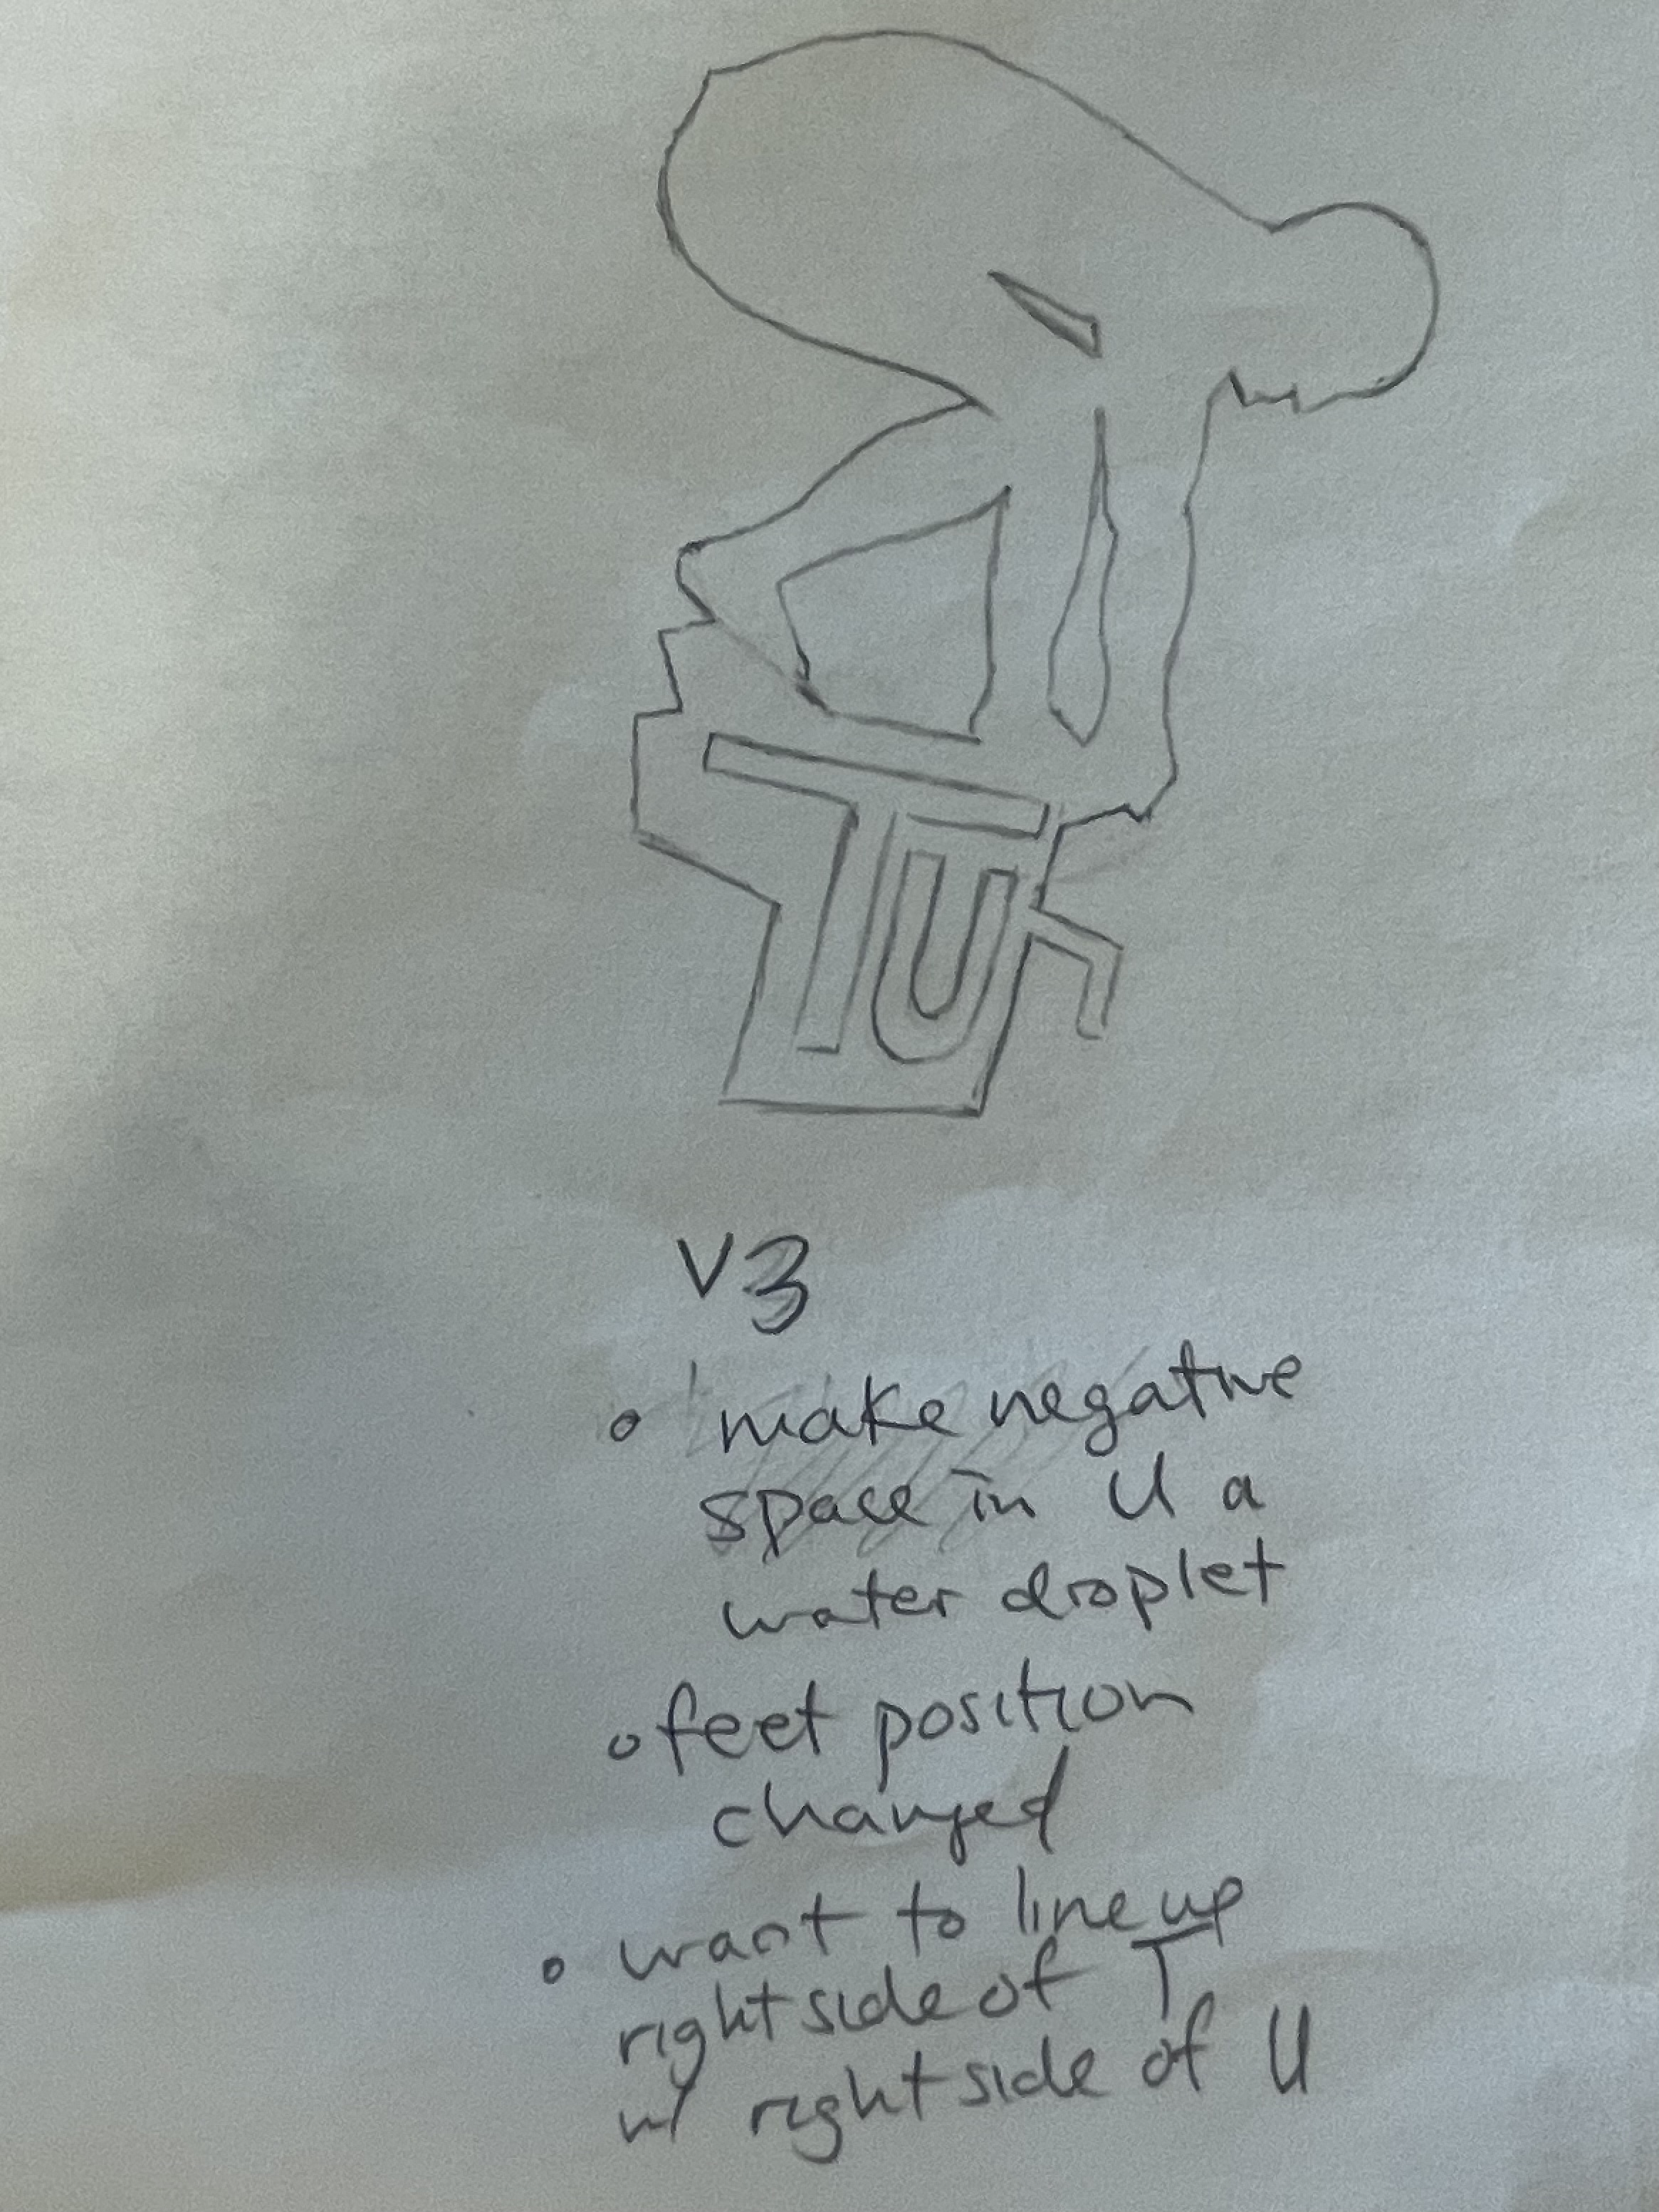 TU
V3
• make negative
space in U a
water droplet
• feet position
changed
• want to line up
right side of T
w/ right side of U